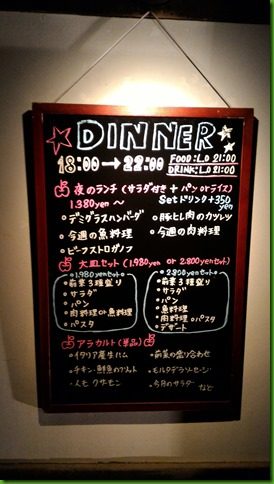 DINNER
18:00→22:00 FOOD:L.O 21:00
DRINK:L.O 21:00
夜のランチ (サラダ付き + パン orライス)
1.380yen ～ Setドリンク+350yen
・デミグラスハンバーグ ・豚ヒレ肉のカツレツ
・今週の魚料理 ・今週の肉料理
・ビーフストロガノフ
大皿セット(1.980yen or 2.800yenセット)
・1.980yenセット・
・前菜3種盛り
・サラダ
・パン
・肉料理or魚料理
・パスタ
・2800yenセット・
・前菜3種盛り
・サラダ
・パン
・魚料理
・肉料理 ・パスタ
・デザート
アラカルト(単品)
・イタリア産生ハム ・前菜の盛り合わせ
・チキン・鮮魚のフリット ・モルタデラソーセージ
・今月のサラダ など